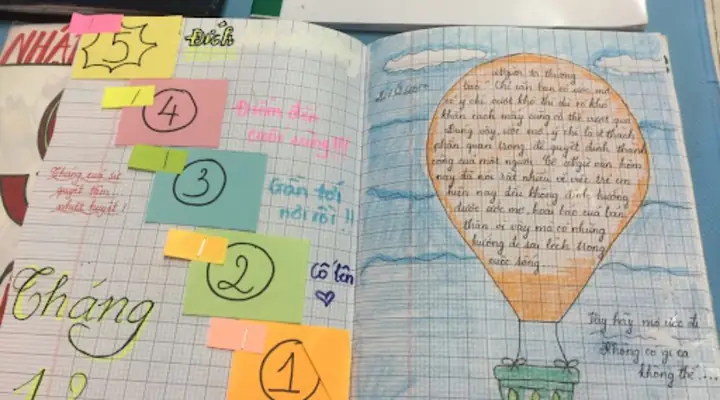 NHÂ
5
Đích
4
Điểm đến
cuối cùng !!!
3
Gần tới
nơi rồi !!
Tháng của sự
quyết tâm
nhiệt huyết !
2
Cố lên
Tháng
1
Người ta thường
bảo " Chỉ cần bạn có ước mơ
có ý chí vượt khó thì dù có khó
khăn cách mấy cũng có thể vượt qua
Đúng vậy, ước mơ, ý chí là 1 thành
phần quan trọng để quyết định thành
công của một người.
này đã nói rất nhiều về việc trẻ em
hiện nay đều không định hướng
được ước mơ, hoài bão của bản
thân vì vậy mà có những
hướng đi sai lệch trong
cuộc sống
Vậy hãy mơ ước đi
Không có gì là
không thể ....